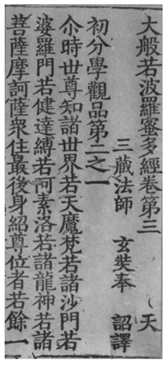 大般若波羅蜜多經卷第三　天
三藏法師　玄奘奉　詔譯
初分學觀品第二之一
尒時世尊知諸世界若天魔梵若諸沙門若
婆羅門若健達縛若阿素洛若諸龍神若諸
菩薩摩訶薩衆住最後身紹尊位者若餘一